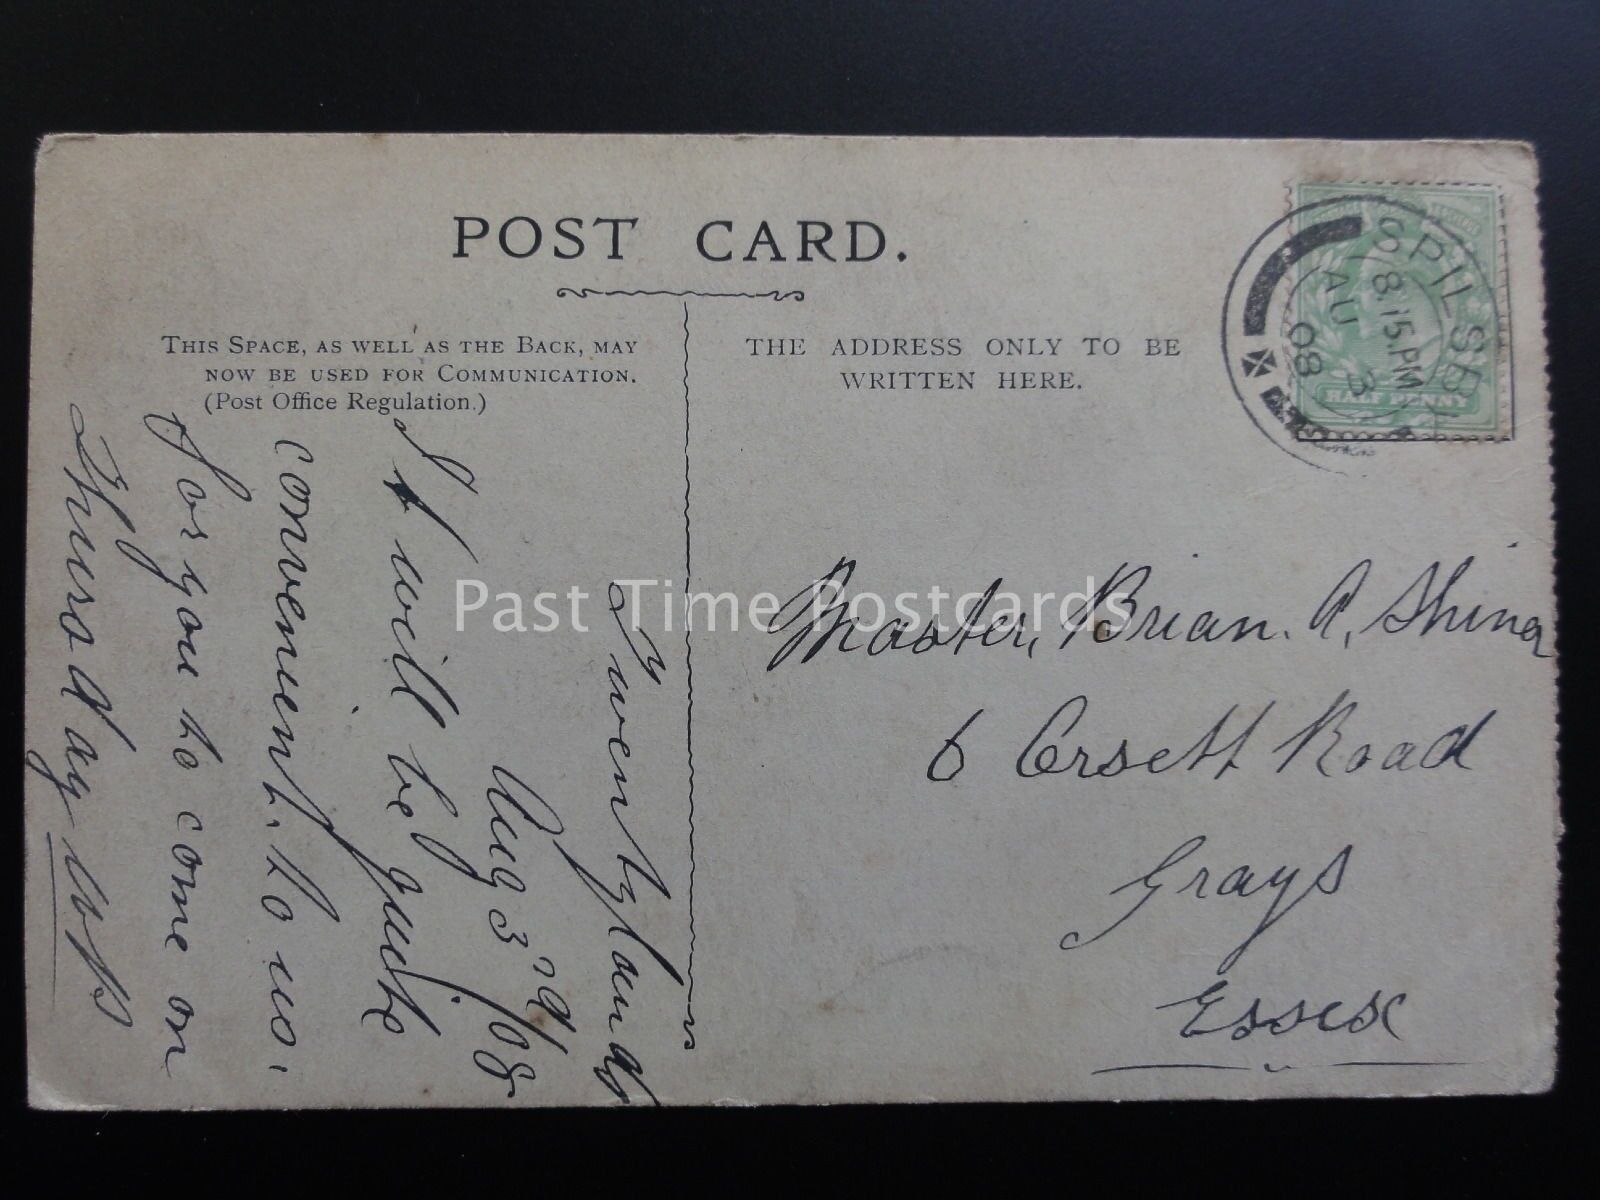 POST CARD.
THIS SPACE, AS WELL AS THE BACK, MAY
NOW BE USED FOR COMMUNICATION.
(Post Office Regulation.)
THE ADDRESS ONLY TO BE
WRITTEN HERE.
SPILSBY
8.15 PM
AU 3
08
HALF PENNY
Aug 3rd/08
It will be quite
convenient. to us.
for you to come on
Thursday
Master, Brian. A. Shiner
6 Orsett Road
Grays
Essex
Past Time Postcards